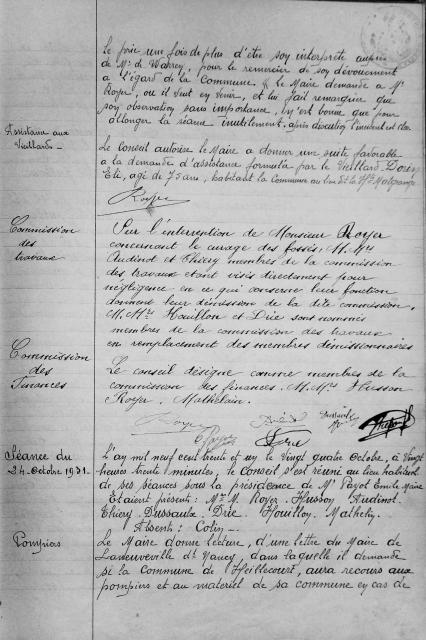 le prie une fois de plus d'être son interprète auprès
de Mr de Warrey, pour le remercier de son dévouement
à l'égard de la Commune. Le Maire demande à Mr
Royer, où il veut en venir, et lui fait remarquer que
son observation sans importance, n'est bonne que pour
allonger la séance inutilement. après discution l'incident est clos.
Assistance aux
Vieillards
Le Conseil autorise le Maire à donner une suite favorable
à la demande d'assistance formulée par le Vieillard
âgé de 75 ans, habitant la Commune au lieu dit la
Royer
Commission
des
travaux
Sur l'intervention de Monsieur Royer
concernant le curage des fossés, M. Mrs
Audinot et Thiery membres de la commission
des travaux étant visés directement pour
négligence en ce qui concerne leur fonction
donnent leur démission de la dite commission.
M. Mrs Houillon et Drie sont nommés
membres de la commission des travaux
en remplacement des membres démissionnaires
Commission
des
Finances
Le conseil désigne comme membres de la
commission des finances. M. Mrs Husson
Royer, Mathelin.
Royer
Séance du
24. Octobre 1931.
L'an mil neuf cent trente et un le vingt quatre Octobre, à vingt
heures trente minutes, le Conseil s'est réuni au lieu habituel
de ses séances sous la présidence de Mr Payot Emile Maire
Etaient présents: Mr M. Royer. Husson Audinot.
Thiery. Dussaulx Drie. Houillon. Mathelin.
Absent: Colin.
Pompiers
Le Maire donne lecture, d'une lettre du Maire de
Laneuveville dt Nancy, dans laquelle il demande
si la Commune de Heillecourt, aura recours aux
pompiers et au matériel de sa commune en cas de